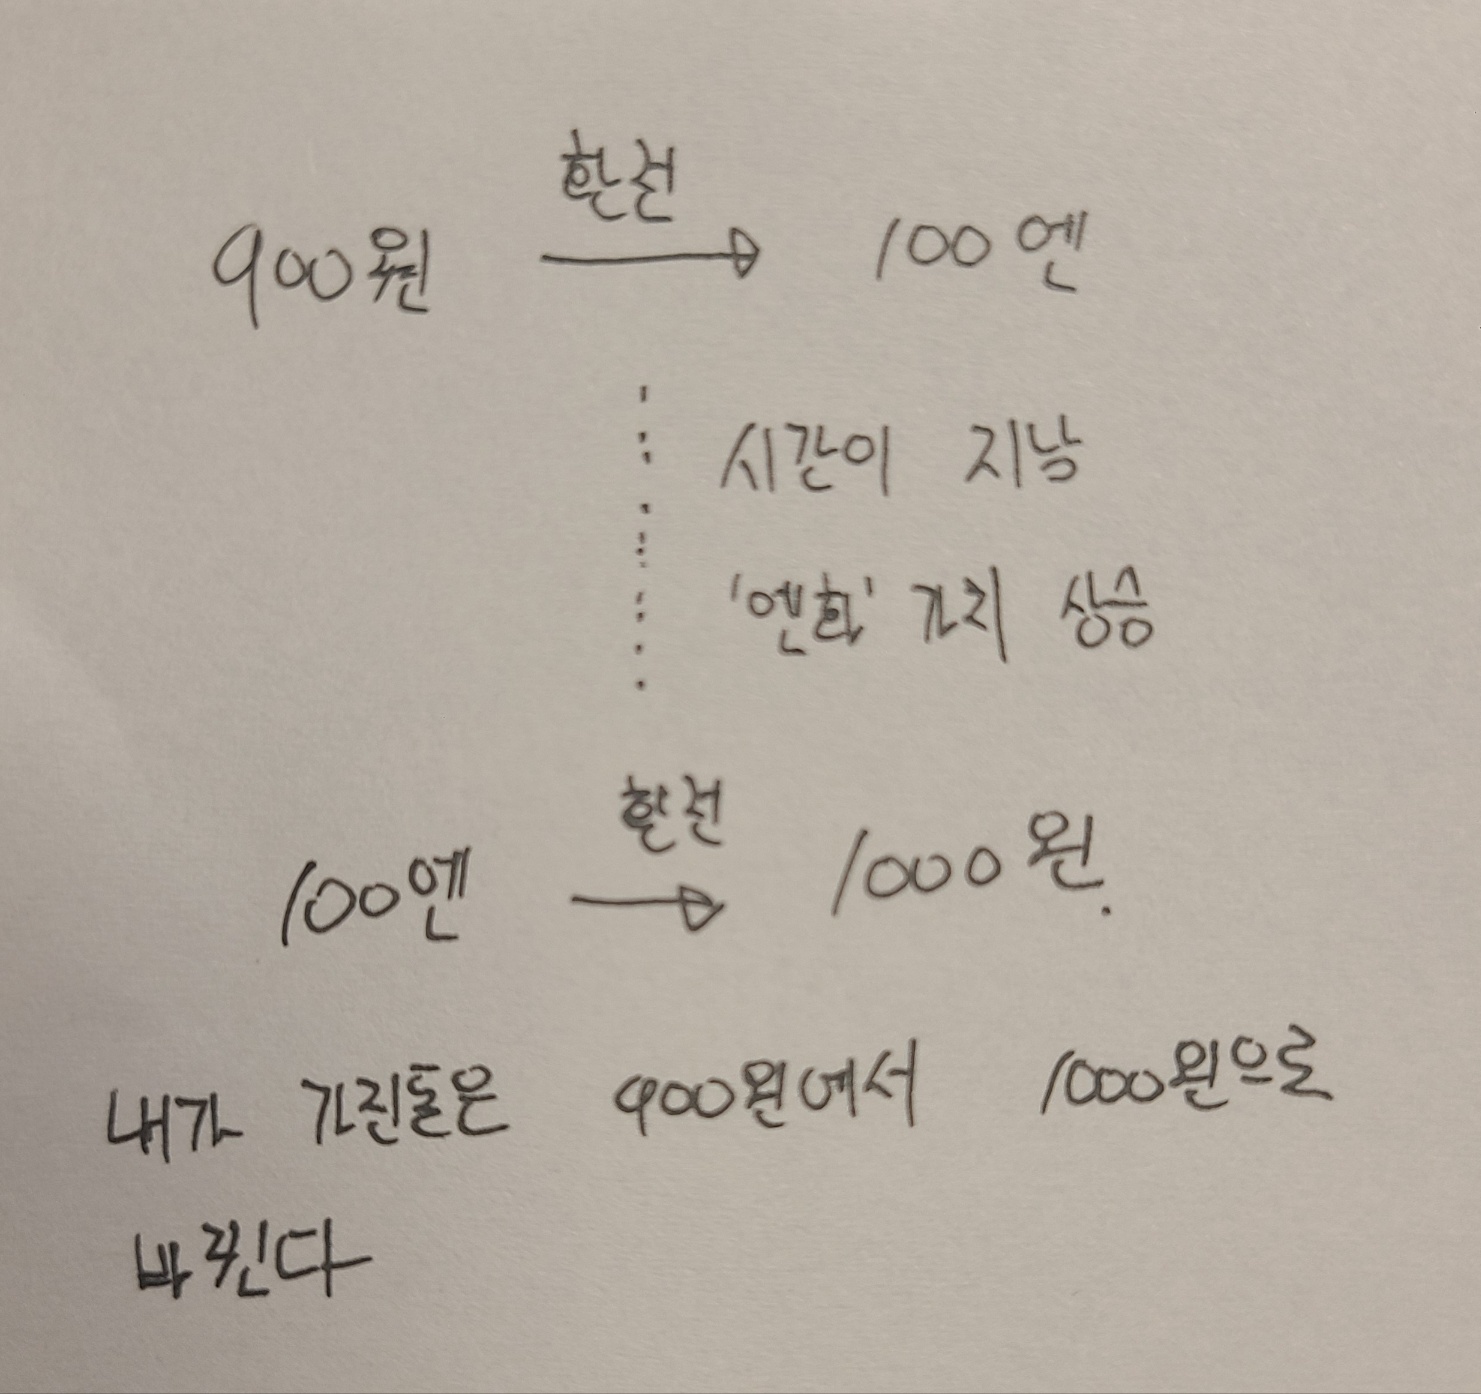 환전
900원 100엔
시간이 지남
'엔화' 가치 상승
환전
100엔 1000원.
내가 가진돈은 900원에서 1000원으로
바뀐다